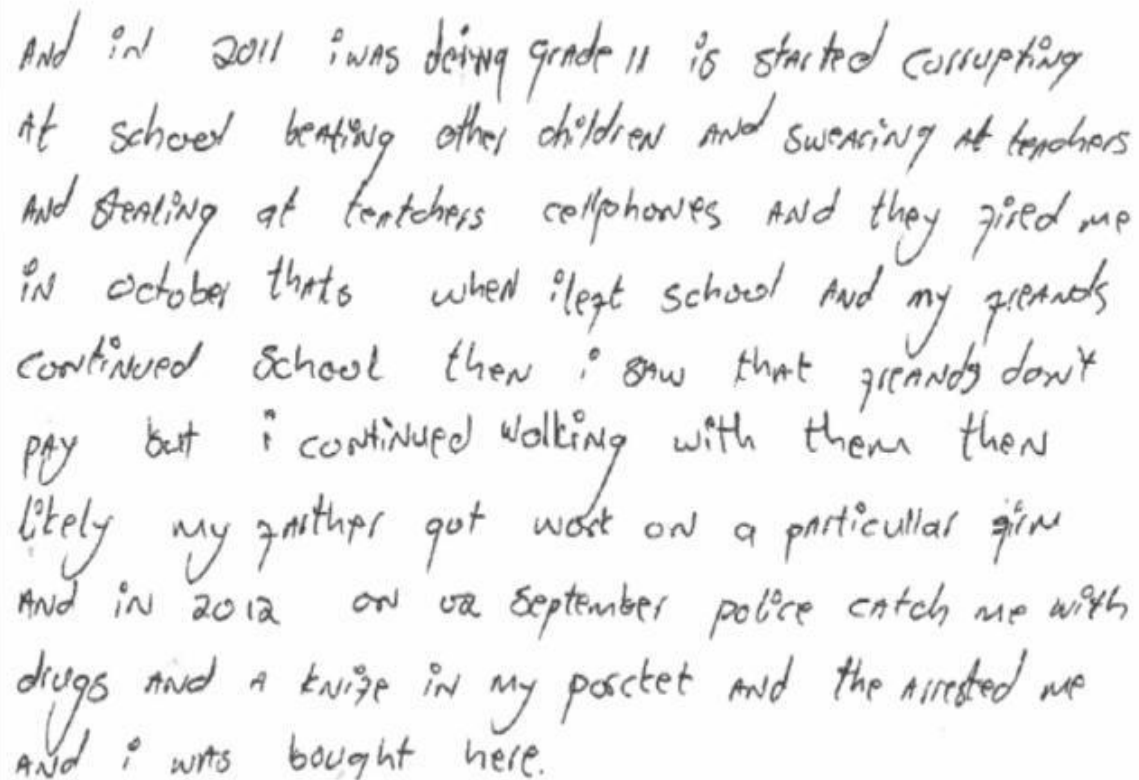 And in 2011 i was doing grade 11 is started currupting
At school beating other children And swearing At teachers
And stealing at teatchers cellphones And they fired me
in october thats when i left school And my freands
continued school then i saw that freands don't
pay but i continued Walking with them then
litely my farther got work on a particullar firm
And in 2012 on 02 September police catch me with
drugs And A knife in my porcket And the Arrested me
And i was bought here.